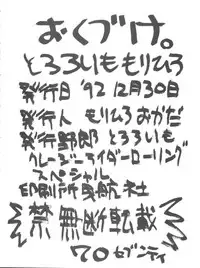 おくづけ。
とろろいももりひろ
発行日 '92 12月30日
発行人 もりひろ おかだ
発行野郎 とろろいも
クレージーライダーローリング
スペシャル
印刷所 曳航社
禁無断転載
70 セブンティ